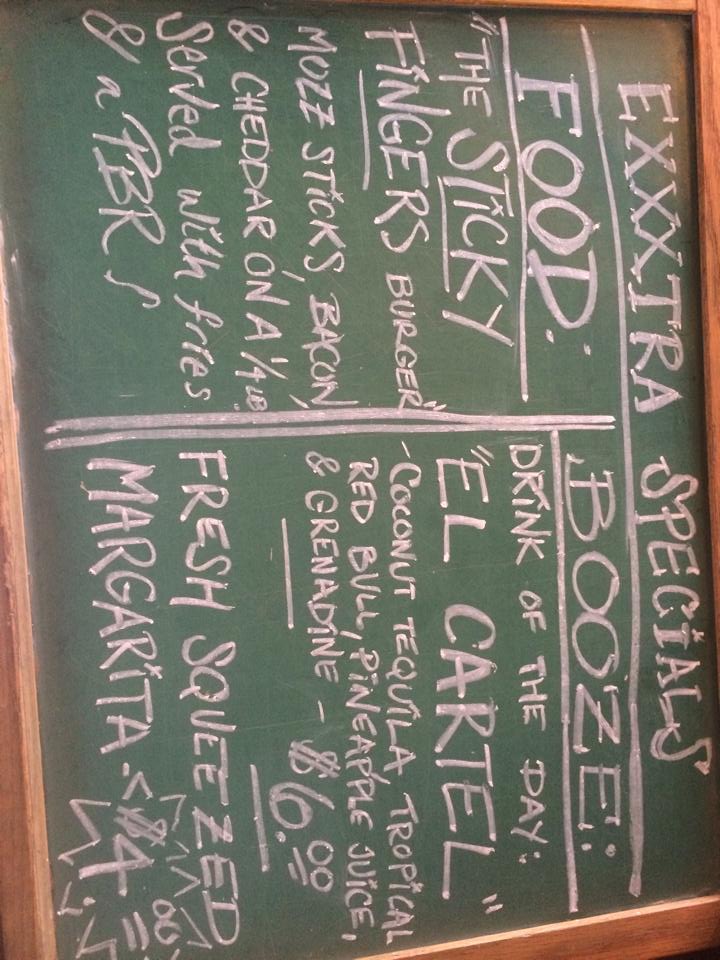 EXXXTRA SPECIALS
FOOD:
"THE STICKY
FINGERS BURGER"
MOZZ STICKS, BACON,
& CHEDDAR ON A 1/4 LB
Served with fries
& a PBR!
BOOZE:
DRINK OF THE DAY:
"EL CARTEL"
-COCONUT TEQUILA TROPICAL
RED BULL, PINEAPPLE JUICE,
& GRENADINE - $6.00
FRESH SQUEEZED
MARGARITA - $4.00